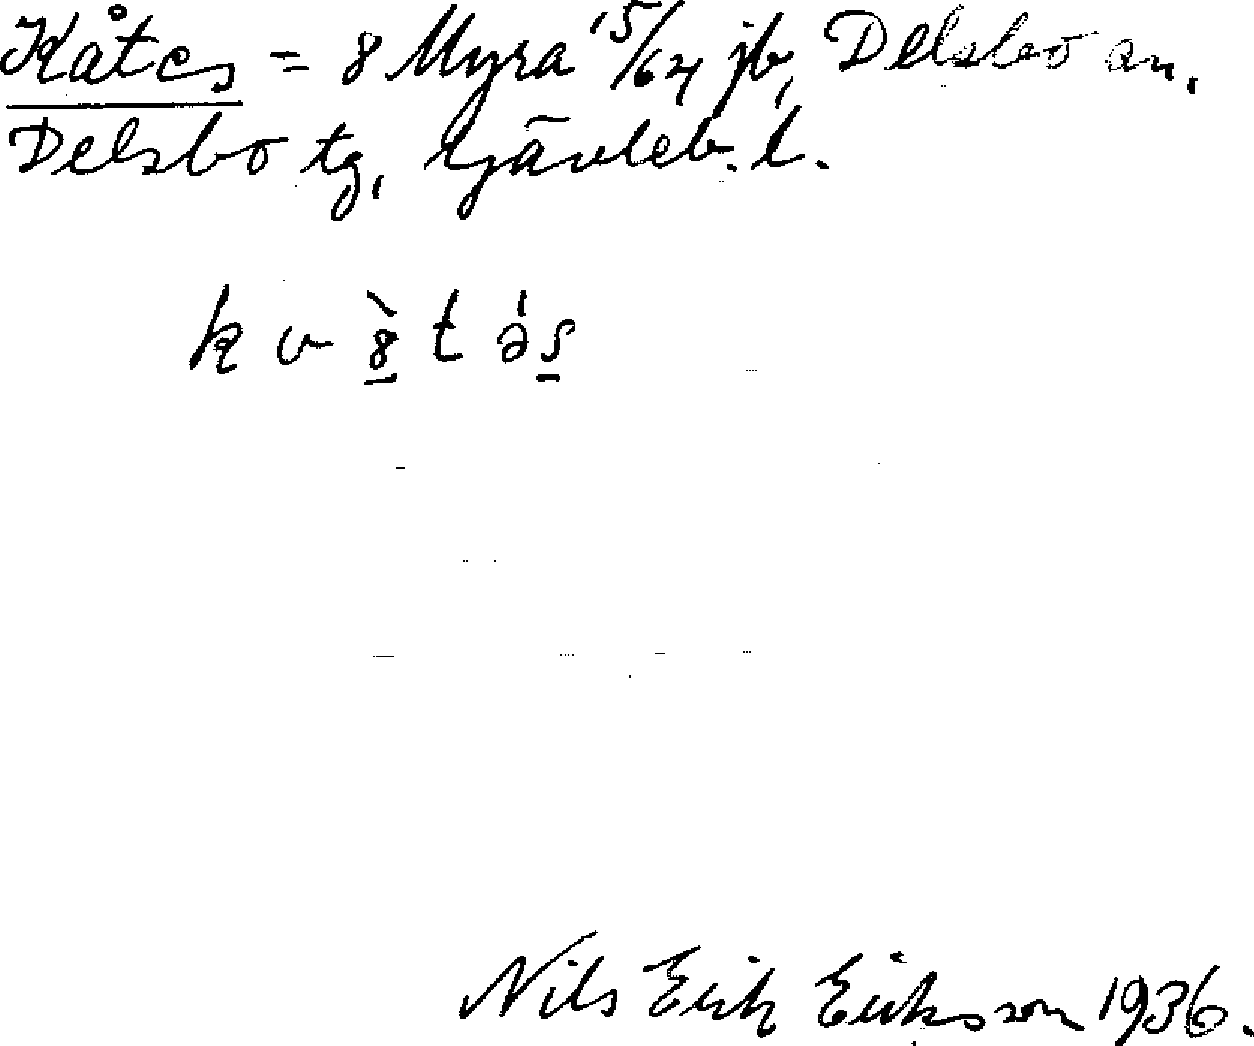 Kåtes = 8 Myra 15/64 jb, Delsbo sn,
Delsbo tg, Gävleb. l.
Nils Erik Eriksson 1936.